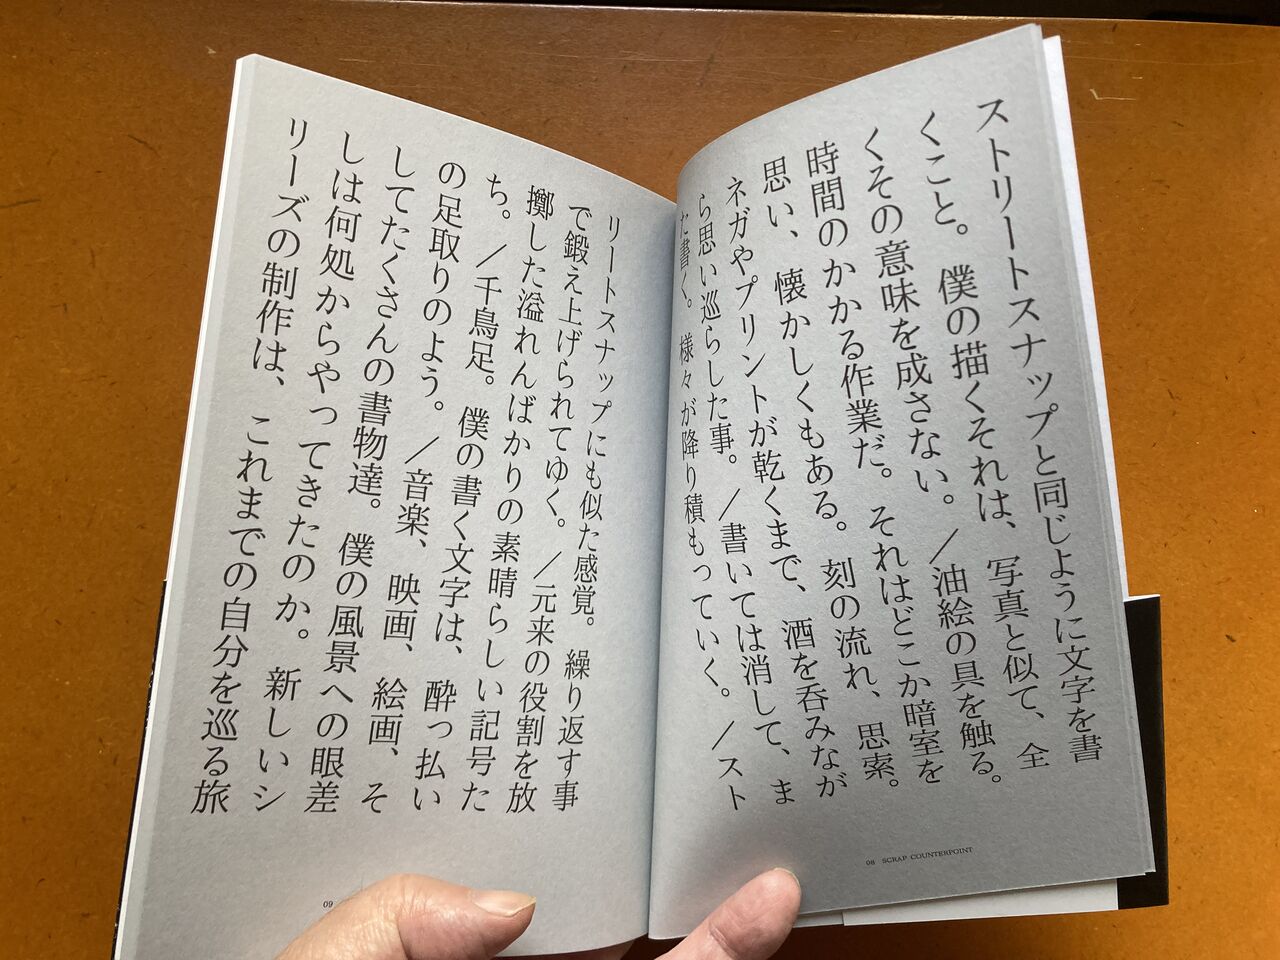 ストリートスナップと同じように文字を書
くこと。僕の描くそれは、写真と似て、全
くその意味を成さない。／油絵の具を触る。
時間のかかる作業だ。それはどこか暗室を
思い、懐かしくもある。刻の流れ、思索。
ネガやプリントが乾くまで、酒を呑みなが
ら思い巡らした事。／書いては消して、ま
た書く。様々が降り積もっていく。／スト
08 SCRAP COUNTERPOINT
リートスナップにも似た感覚。繰り返す事
で鍛え上げられてゆく。／元来の役割を放
擲した溢れんばかりの素晴らしい記号た
ち。／千鳥足。僕の書く文字は、酔っ払い
の足取りのよう。／音楽、映画、絵画、そ
してたくさんの書物達。僕の風景への眼差
しは何処からやってきたのか。新しいシ
リーズの制作は、これまでの自分を巡る旅
09